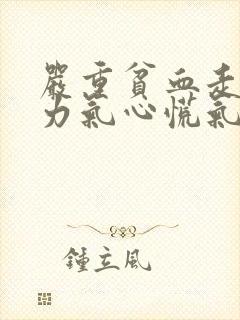 嚴重貧血走
力氣心慌氣
鍾立風